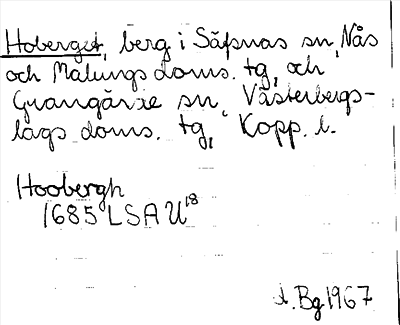 Hoberget, berg i Säfsnäs sn, Nås
och Malungs doms. tg, och
Grangärde sn, Västerbergs-
lags doms. tg, Kopp. l.
Hoobergh
1685 LSA U18
Bg 1967